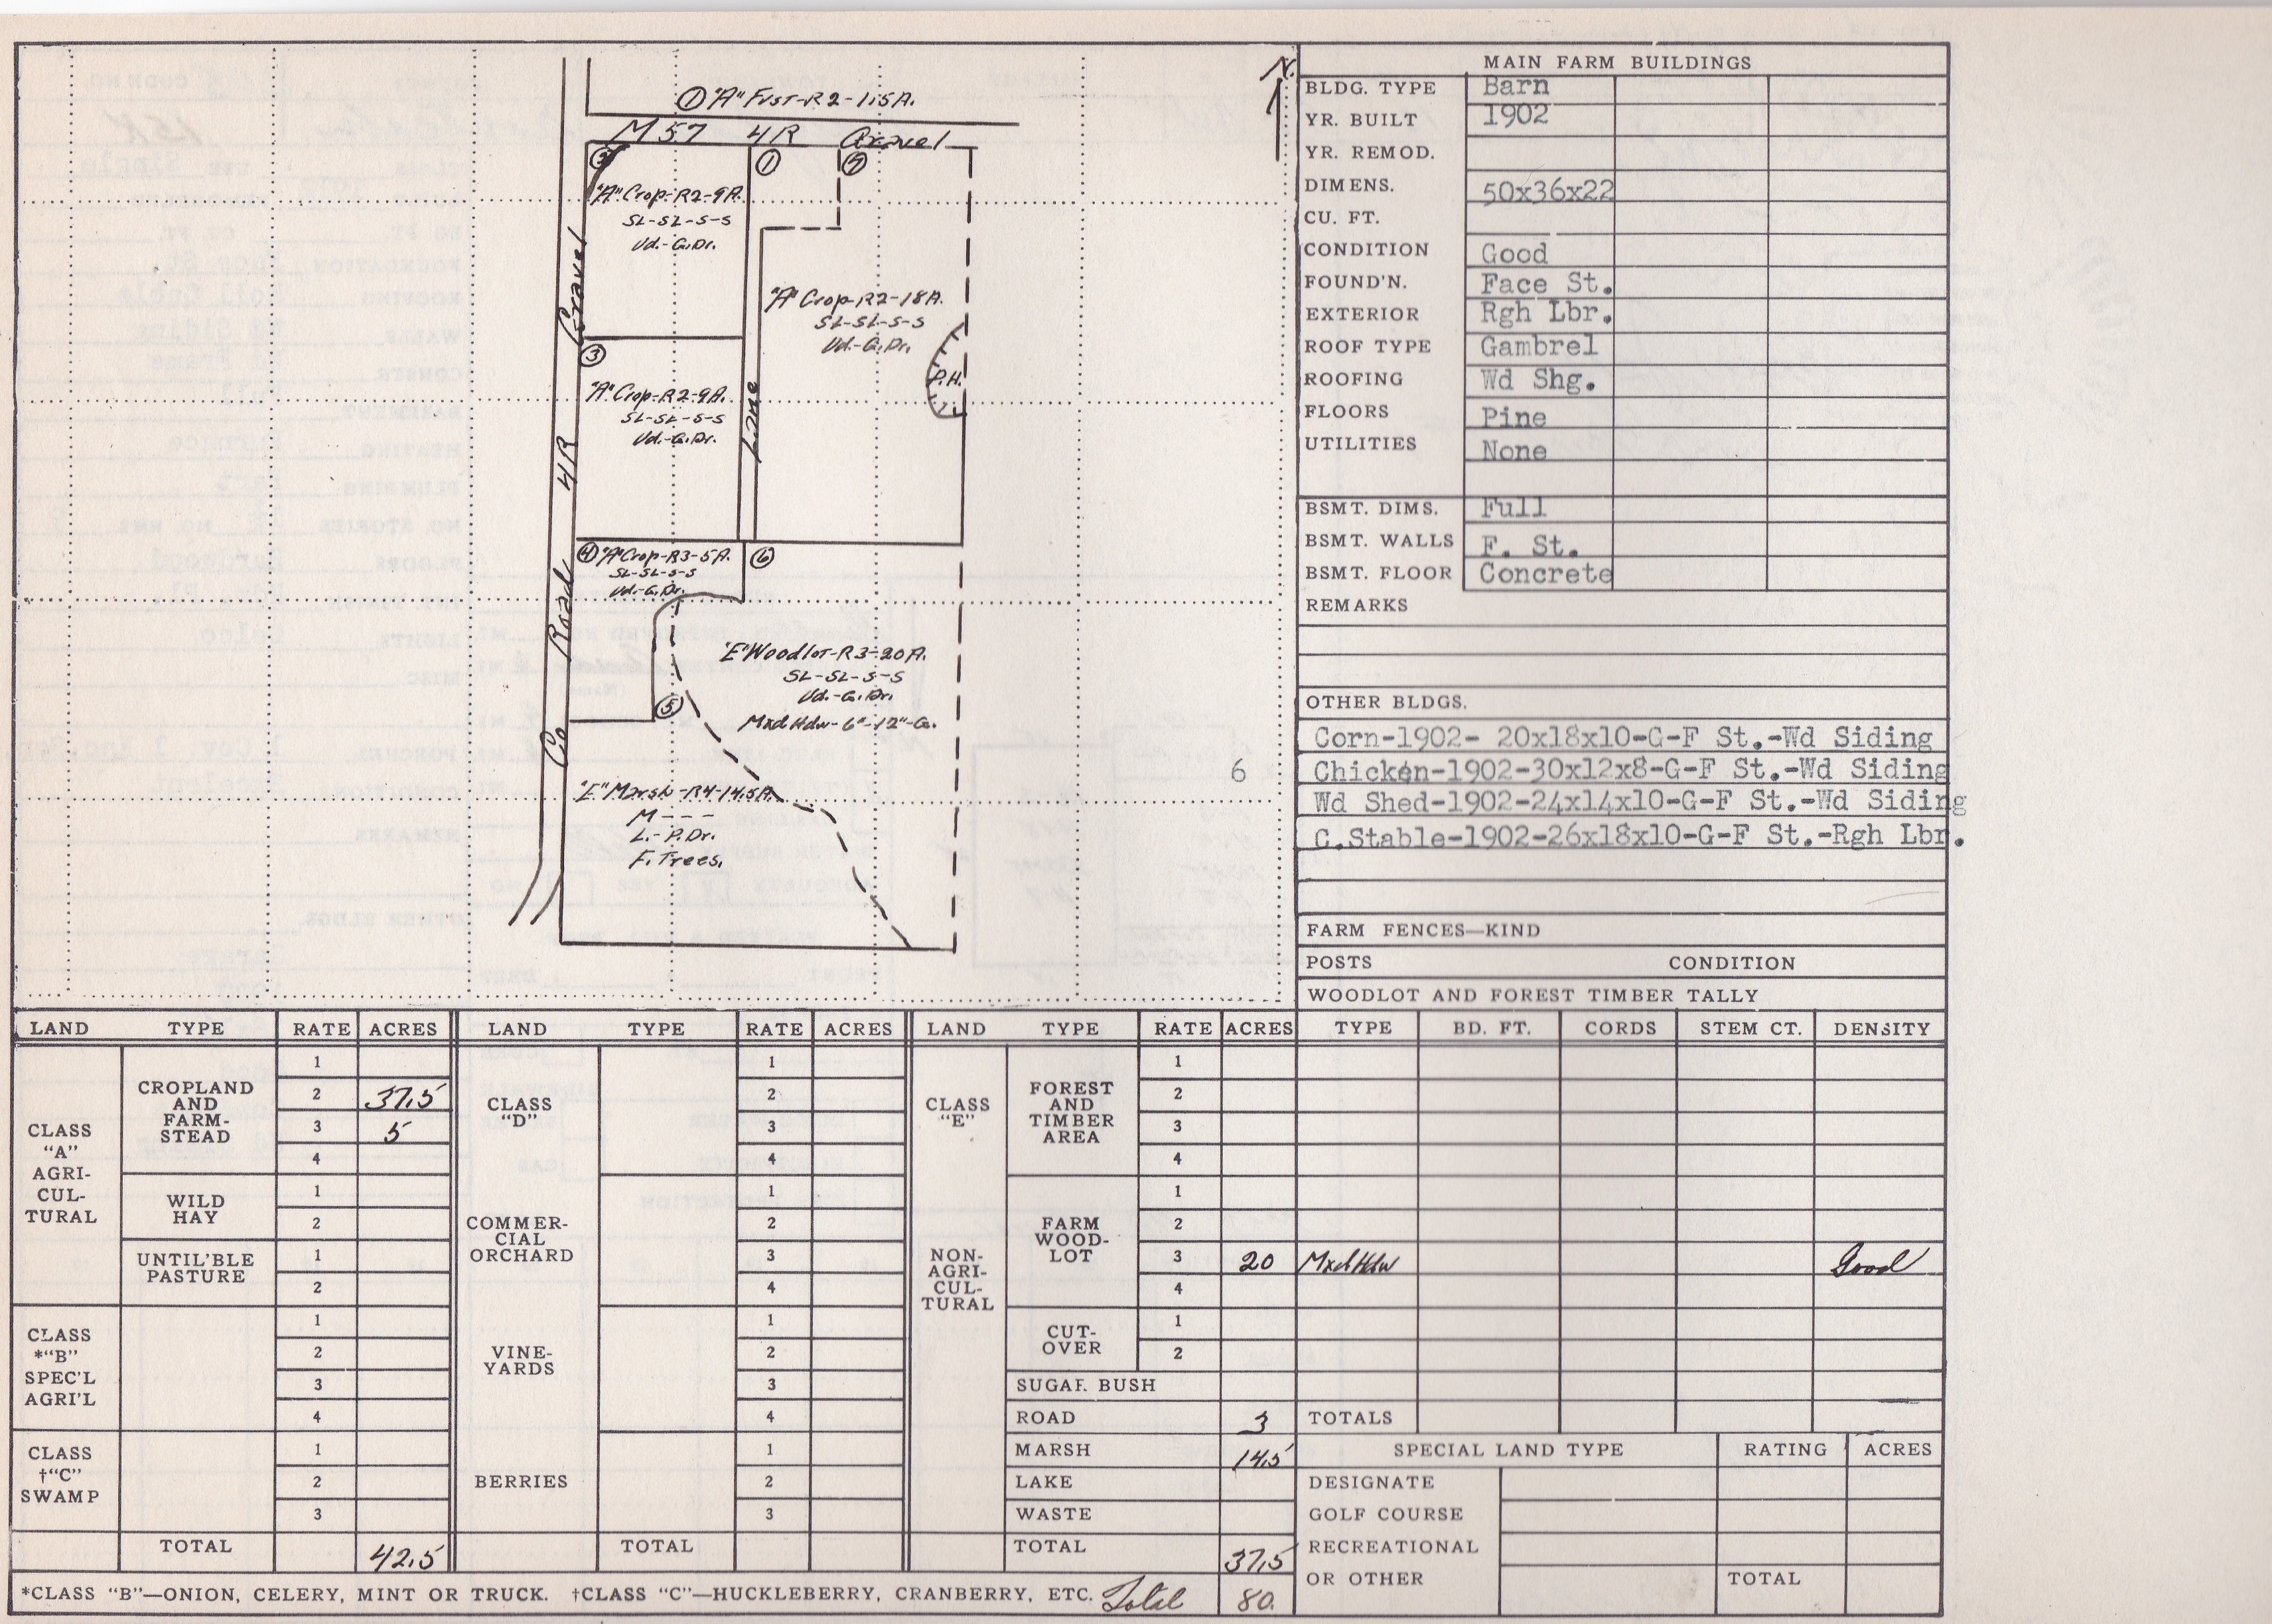 N.
① "A" Frst-R2-1.5A.
M 57 4R Gravel
② ① ⑦
"A" Crop-R2-9A.
SL-SL-S-S
Ud.-G.Dr.
"A" Crop-R2-18A.
SL-SL-S-S
Ud.-G.Dr.
P.H.
③
"A" Crop-R2-9A.
SL-SL-S-S
Ud.-G.Dr.
Lane
Co Road 4R Gravel
④ "A" Crop-R3-5A.
SL-SL-S-S
Ud.-G.Dr.
⑥
"E" Woodlot-R3-20A.
SL-SL-S-S
Ud.-G.Dr.
Mxd Hdw-6"-12"-G.
⑤
"E" Marsh-R4-14.5A.
M - - -
L.-P.Dr.
F. Trees.
MAIN FARM BUILDINGS
BLDG. TYPE Barn
YR. BUILT 1902
YR. REMOD.
DIMENS. 50x36x22
CU. FT.
CONDITION Good
FOUND'N. Face St.
EXTERIOR Rgh Lbr.
ROOF TYPE Gambrel
ROOFING Wd Shg.
FLOORS Pine
UTILITIES None
BSMT. DIMS. Full
BSMT. WALLS F. St.
BSMT. FLOOR Concrete
REMARKS
OTHER BLDGS.
Corn-1902- 20x18x10-G-F St.-Wd Siding
6 Chicken-1902-30x12x8-G-F St.-Wd Siding
Wd Shed-1902-24x14x10-G-F St.-Wd Siding
C.Stable-1902-26x18x10-G-F St.-Rgh Lbr.
FARM FENCES—KIND
POSTS CONDITION
WOODLOT AND FOREST TIMBER TALLY
LAND TYPE RATE ACRES LAND TYPE RATE ACRES LAND TYPE RATE ACRES TYPE BD. FT. CORDS STEM CT. DENSITY
CLASS "A" AGRI-CUL-TURAL
CROPLAND AND FARM-STEAD
1
2 37.5
3 5
4
WILD HAY
1
2
UNTIL'BLE PASTURE
1
2
CLASS *"B" SPEC'L AGRI'L
1
2
3
4
CLASS †"C" SWAMP
1
2
3
TOTAL 42.5
CLASS "D"
1
2
3
4
COMMER-CIAL ORCHARD
1
2
3
4
VINE-YARDS
1
2
3
4
BERRIES
1
2
3
TOTAL
CLASS "E" NON-AGRI-CUL-TURAL
FOREST AND TIMBER AREA
1
2
3
4
FARM WOOD-LOT
1
2
3 20 Mxd Hdw Good
4
CUT-OVER
1
2
SUGAR BUSH
ROAD 3 TOTALS
MARSH 14.5
LAKE
WASTE
TOTAL 37.5
SPECIAL LAND TYPE RATING ACRES
DESIGNATE
GOLF COURSE
RECREATIONAL
OR OTHER TOTAL
*CLASS "B"—ONION, CELERY, MINT OR TRUCK. †CLASS "C"—HUCKLEBERRY, CRANBERRY, ETC. Total 80.